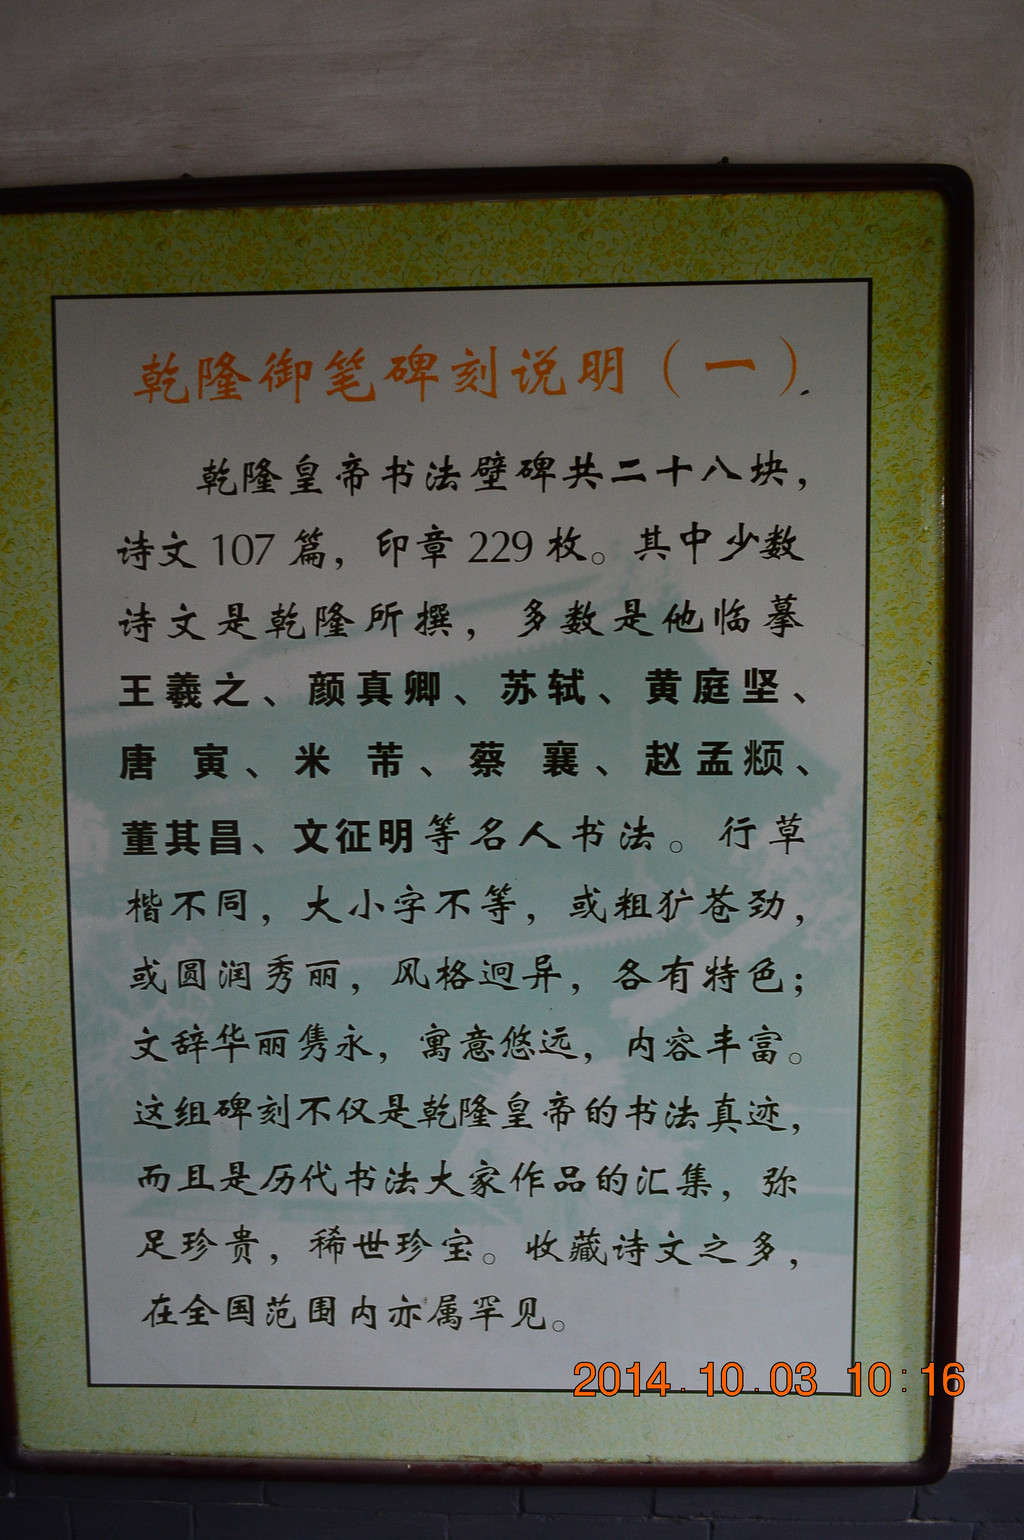 乾隆御笔碑刻说明（一）
乾隆皇帝书法壁碑共二十八块，
诗文107篇，印章229枚。其中少数
诗文是乾隆所撰，多数是他临摹
王羲之、颜真卿、苏轼、黄庭坚、
唐寅、米芾、蔡襄、赵孟頫、
董其昌、文征明等名人书法。行草
楷不同，大小字不等，或粗犷苍劲，
或圆润秀丽，风格迥异，各有特色；
文辞华丽隽永，寓意悠远，内容丰富。
这组碑刻不仅是乾隆皇帝的书法真迹，
而且是历代书法大家作品的汇集，弥
足珍贵，稀世珍宝。收藏诗文之多，
在全国范围内亦属罕见。
2014.10.03 10:16